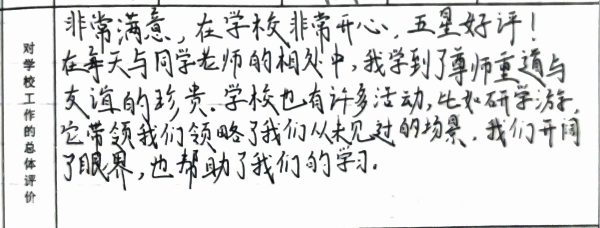 对学校工作的总体评价
非常满意，在学校非常开心，五星好评！
在每天与同学老师的相处中，我学到了尊师重道与
友谊的珍贵。学校也有许多活动，比如研学游，
它带领我们领略了我们从未见过的场景，我们开阔
了眼界，也帮助了我们的学习。